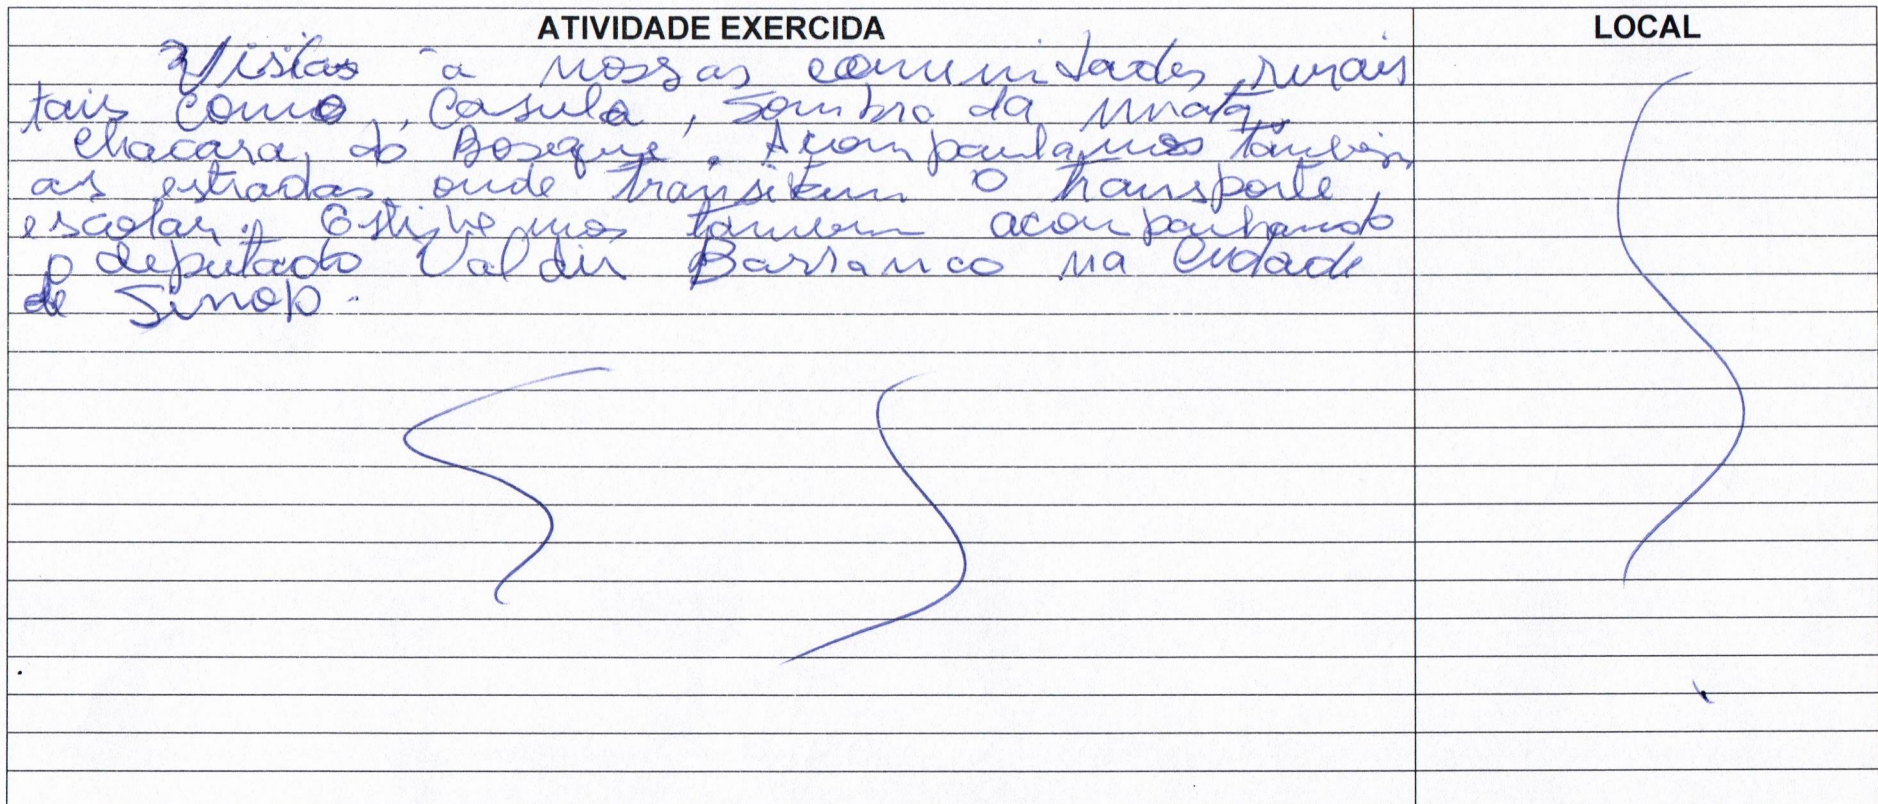 ATIVIDADE EXERCIDA LOCAL
Vistas a nossas comunidades rurais
tais como, Casulo, Sombra da mata,
Chacara do Bosque. Acompanhamos também
as estradas onde transitam o transporte
escolar. Estivemos tambem acompanhando
o deputado Valdir Barranco na cidade
de Sinop.